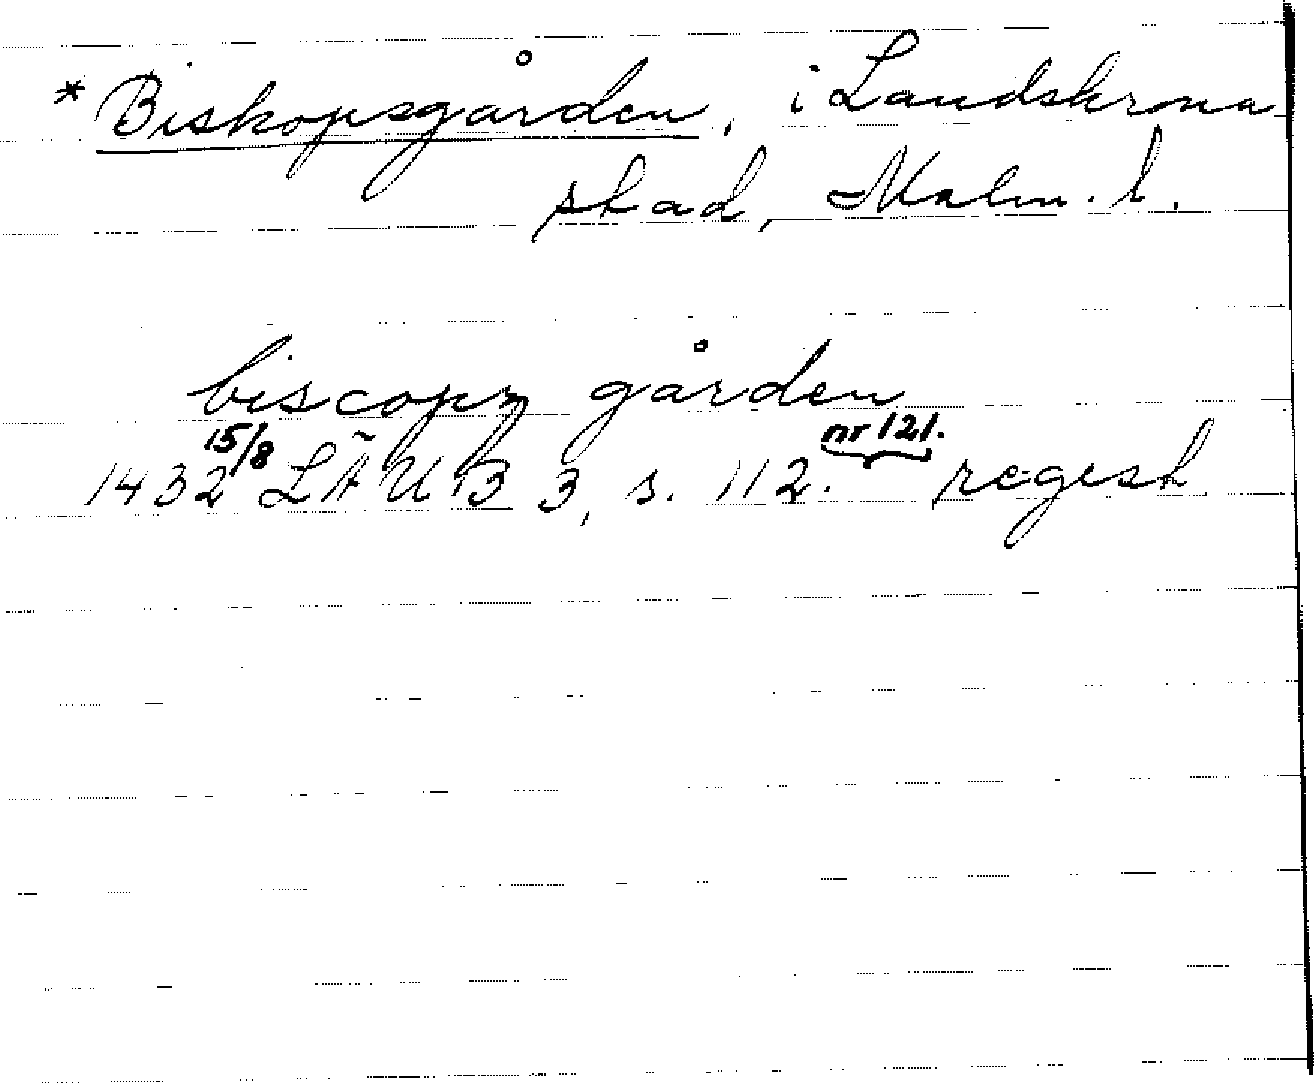 * Biskopsgården, i Landskrona
stad, Malm. l.
biscopz gården
1432 15/8 LÄUB 3, s. 112. nr 121. regest